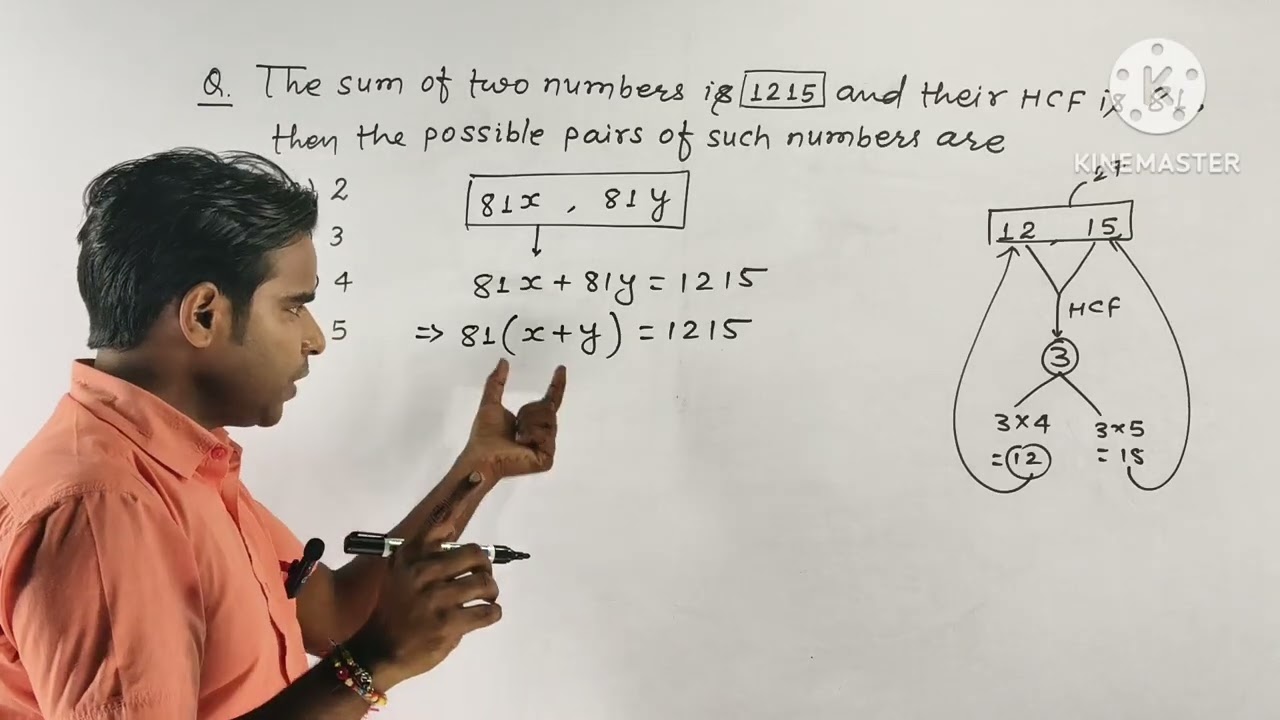 Q. The sum of two numbers is 1215 and their HCF is 81,
then the possible pairs of such numbers are
2
3
4
5
81x , 81y
81x + 81y = 1215
=> 81(x+y) = 1215
27
12 , 15
HCF
3
3×4 3×5
=12 =15
K
KINEMASTER